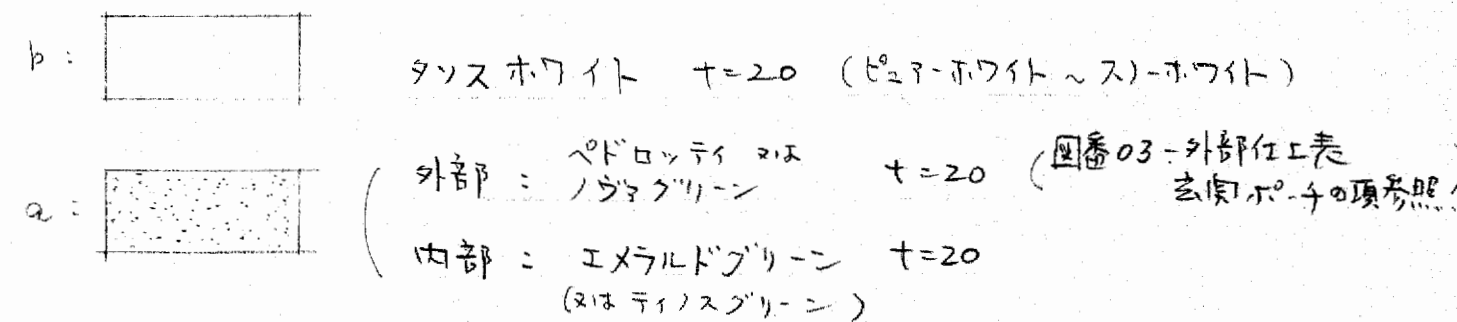 b : タソスホワイト t=20 (ピュアーホワイト ~ スノーホワイト)
a : 外部 : ペドロッティ 又は
ノヴァグリーン t=20 (図番03-外部仕上表
玄関ポーチの項参照)
内部 : エメラルドグリーン t=20
(又はティノスグリーン)